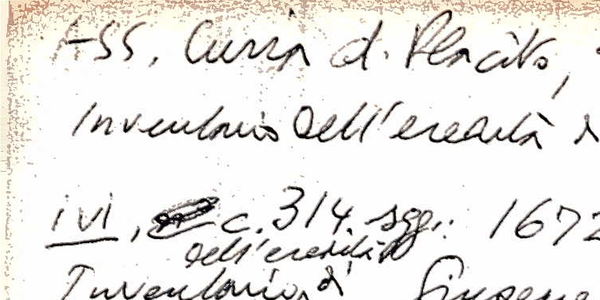 ASS, Curia d. Placito,
Inventario dell'eredità
ivi, c. 314. sgg.: 1672
dell'eredità
Inventario, di